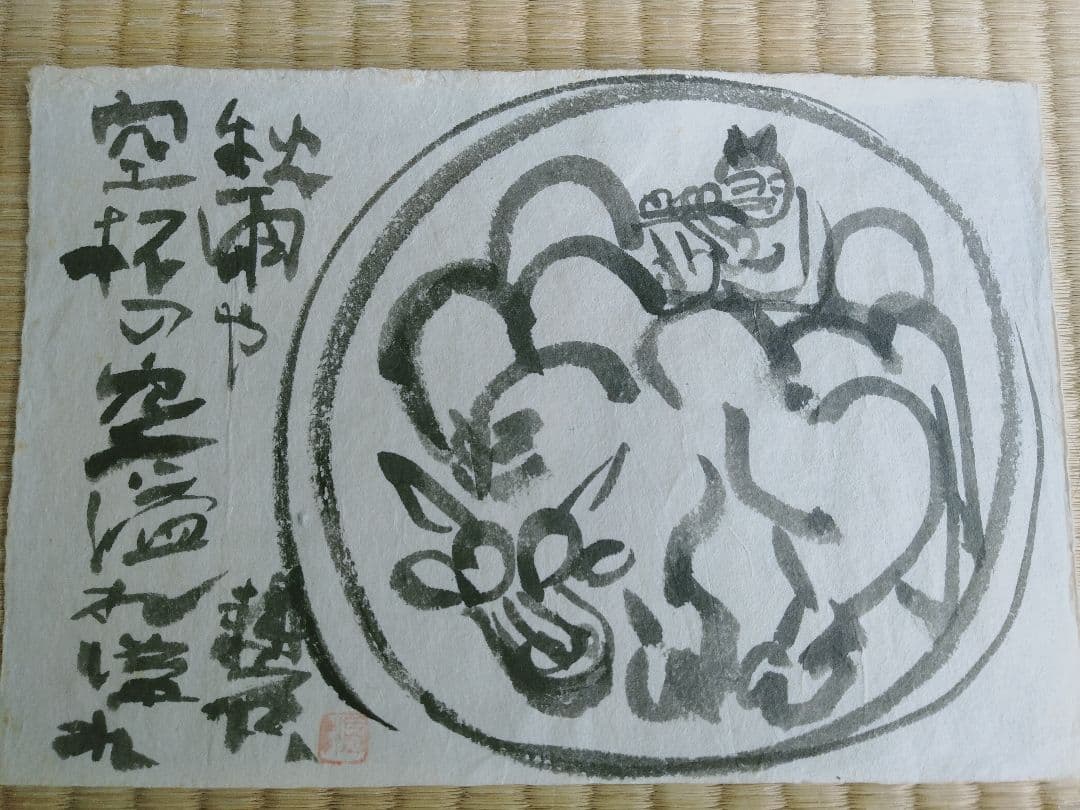 秋雨や
空杯の空溢れ溢れ